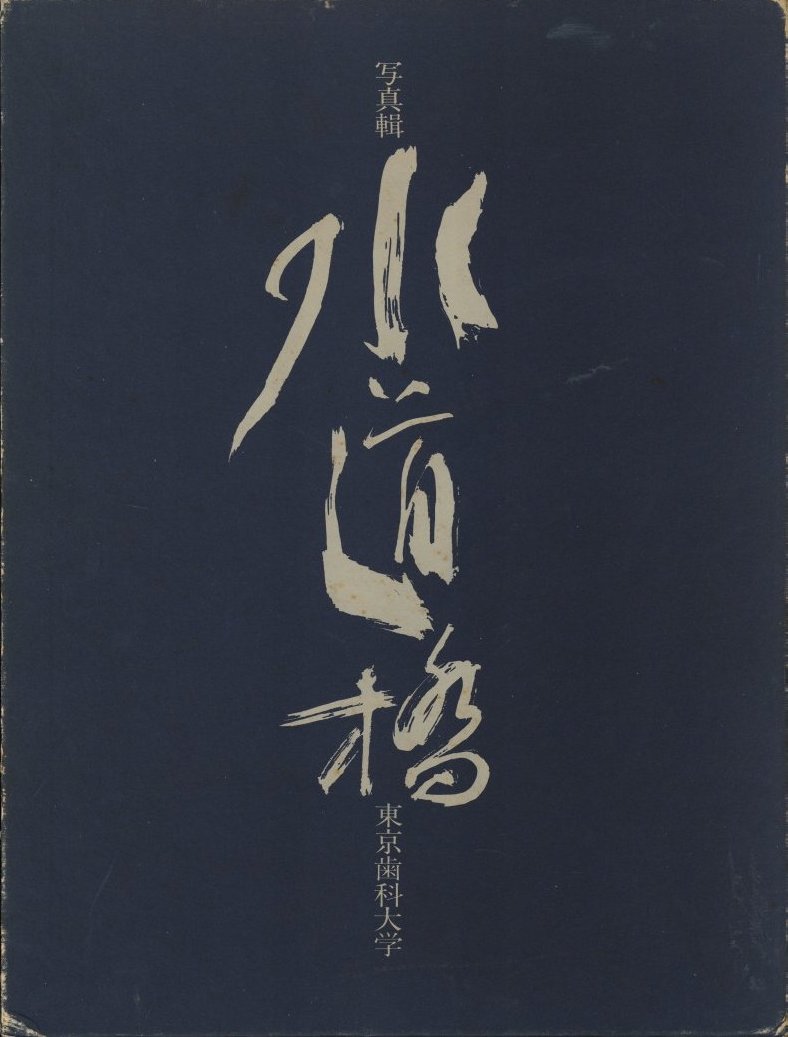 写真輯
水道橋
東京歯科大学